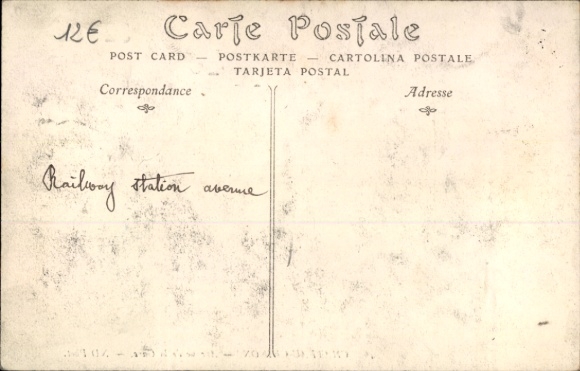 12€
Carte Postale
POST CARD — POSTKARTE — CARTOLINA POSTALE
TARJETA POSTAL
Correspondance
Adresse
Railway station avenue